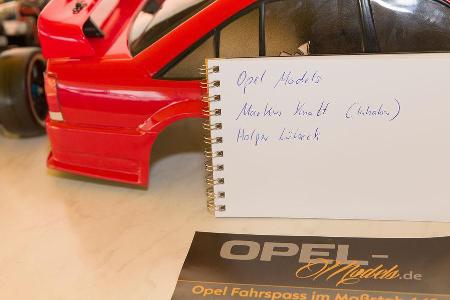 Opel Models
Markus Knatt (Inhaber)
Holger Lübeck
OPEL-
Models.de
Opel Fahrspass im Maßstab